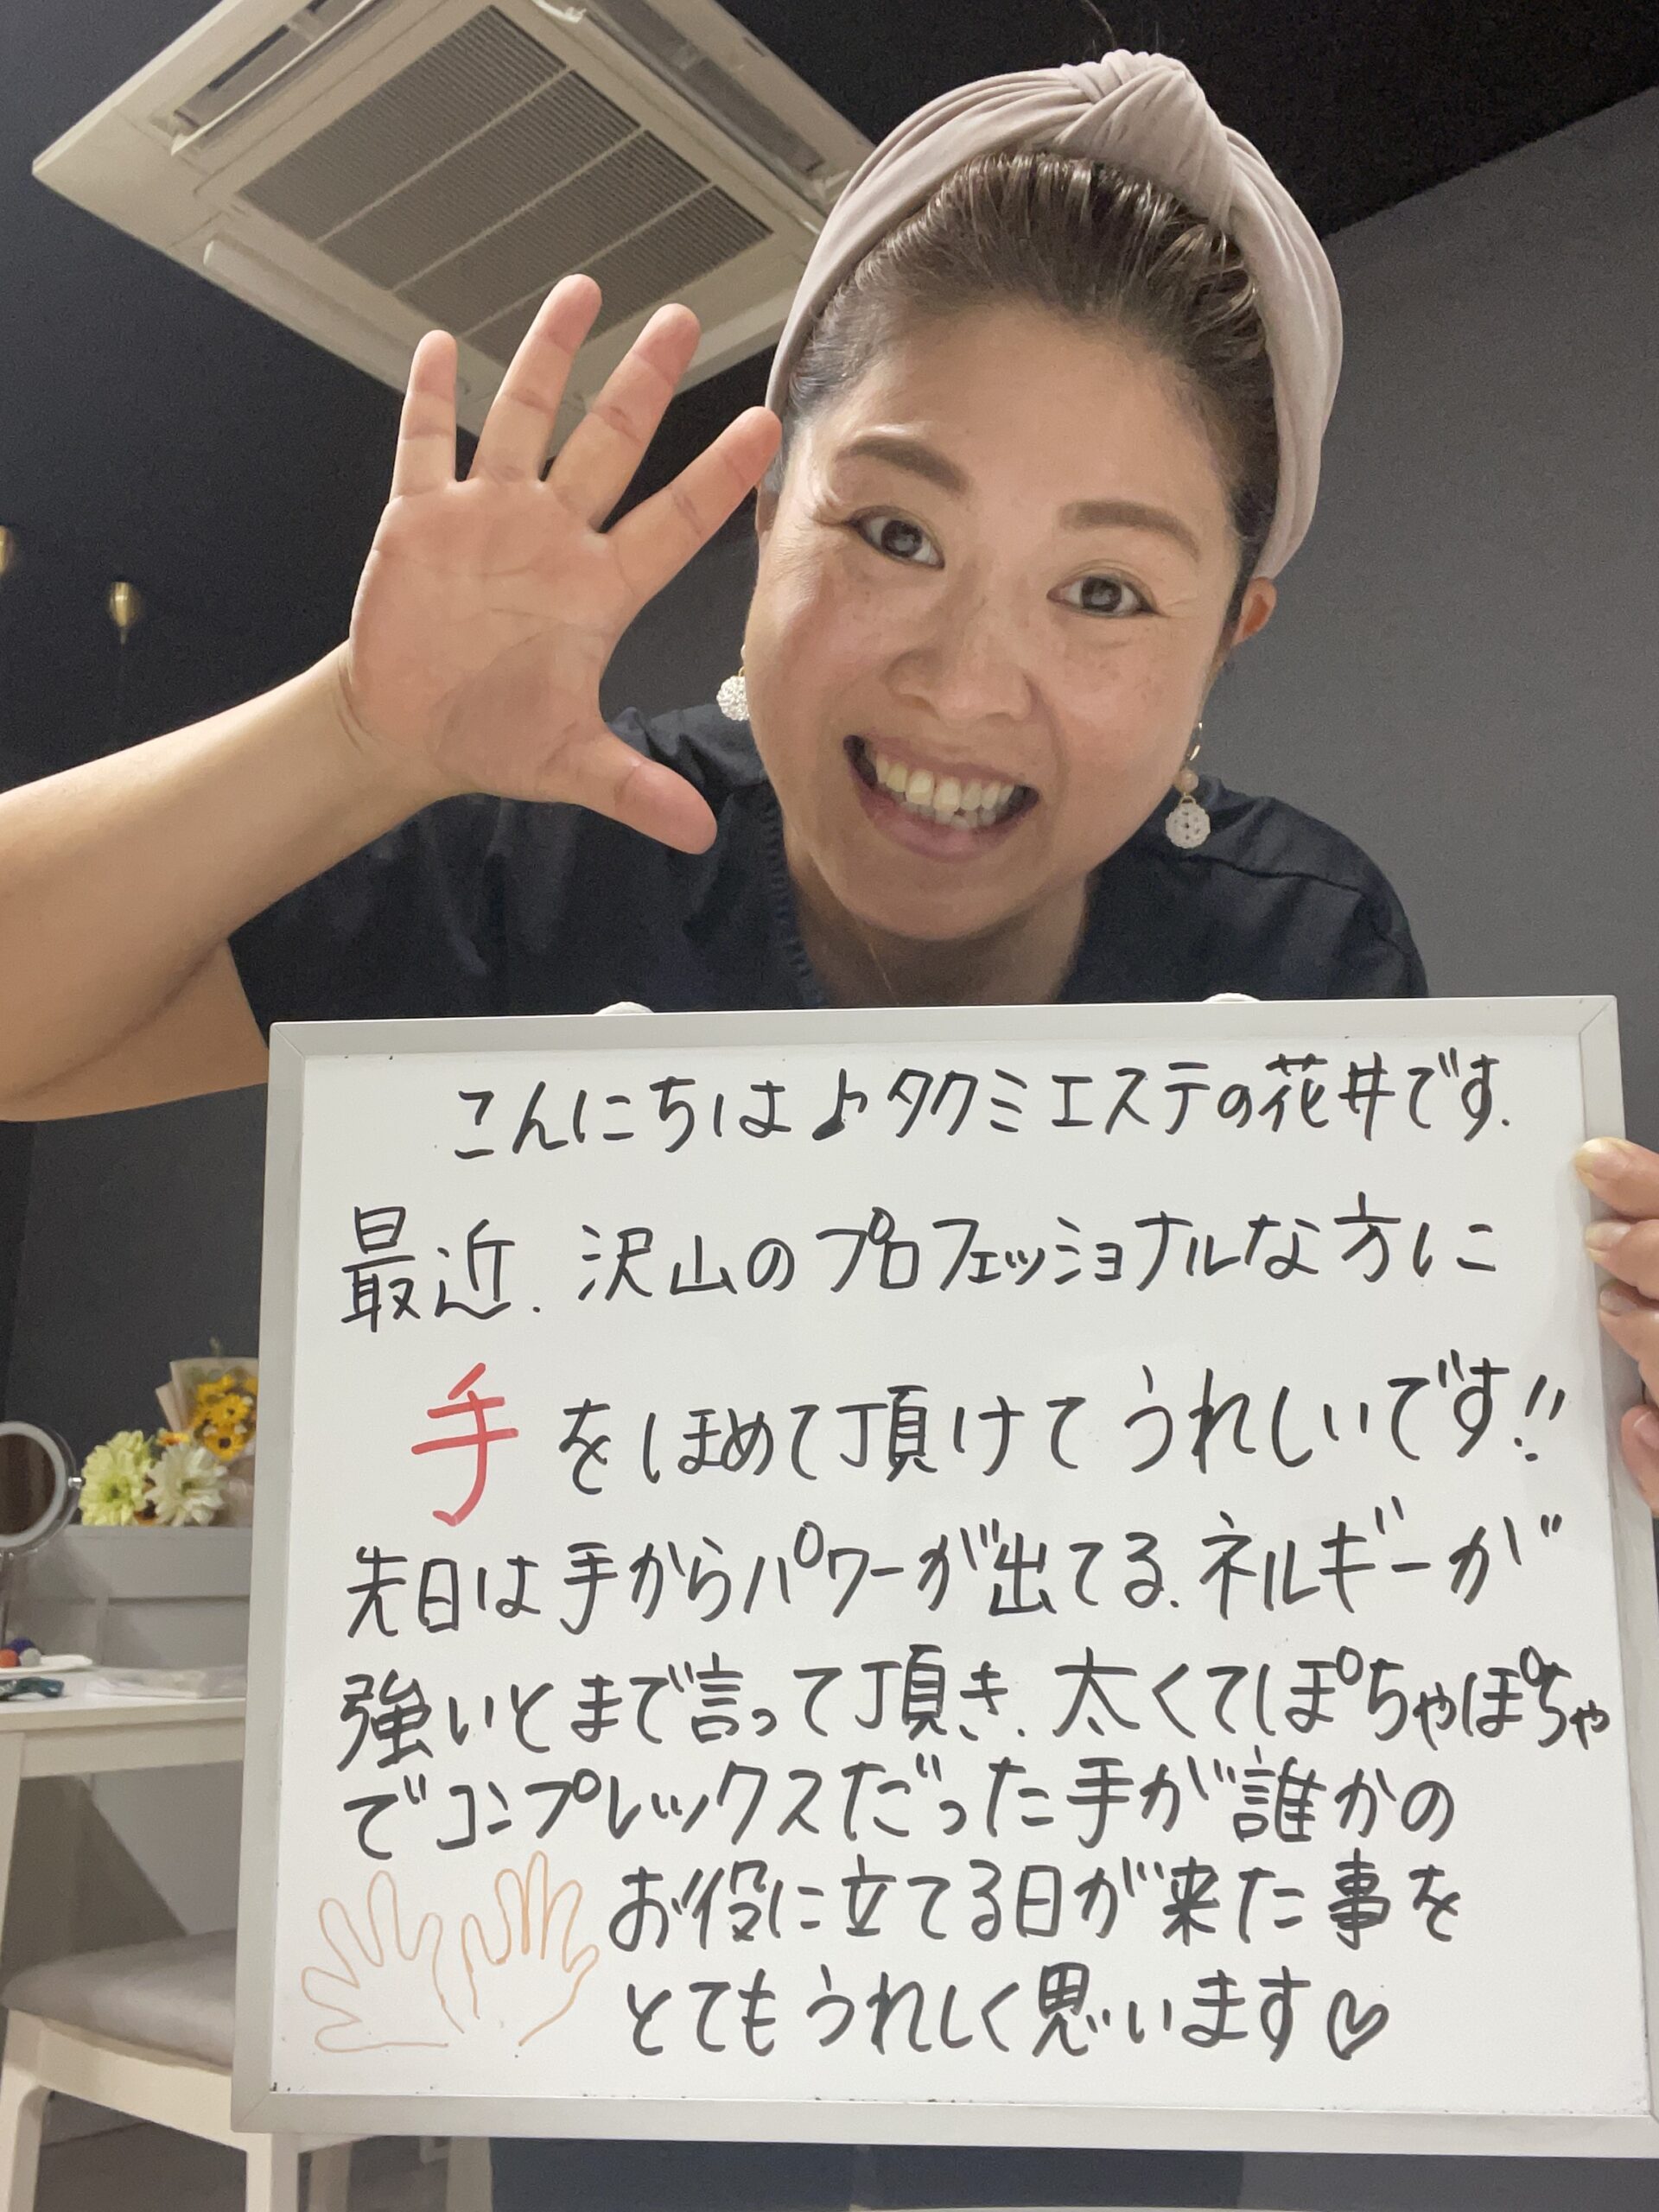 こんにちは♪タクミエステの花井です.
最近.沢山のプロフェッショナルな方に
手をほめて頂けてうれしいです!!
先日は手からパワーが出てる.ネルギーが
強いとまで言って頂き.太くてぽちゃぽちゃ
でコンプレックスだった手が誰かの
お役に立てる日が来た事を
とてもうれしく思います♡